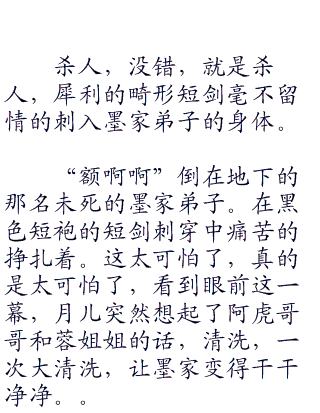 杀人，没错，就是杀
人，犀利的畸形短剑毫不留
情的刺入墨家弟子的身体。
“额啊啊”倒在地下的
那名未死的墨家弟子。在黑
色短袍的短剑刺穿中痛苦的
挣扎着。这太可怕了，真的
是太可怕了，看到眼前这一
幕，月儿突然想起了阿虎哥
哥和蓉姐姐的话，清洗，一
次大清洗，让墨家变得干干
净净。。